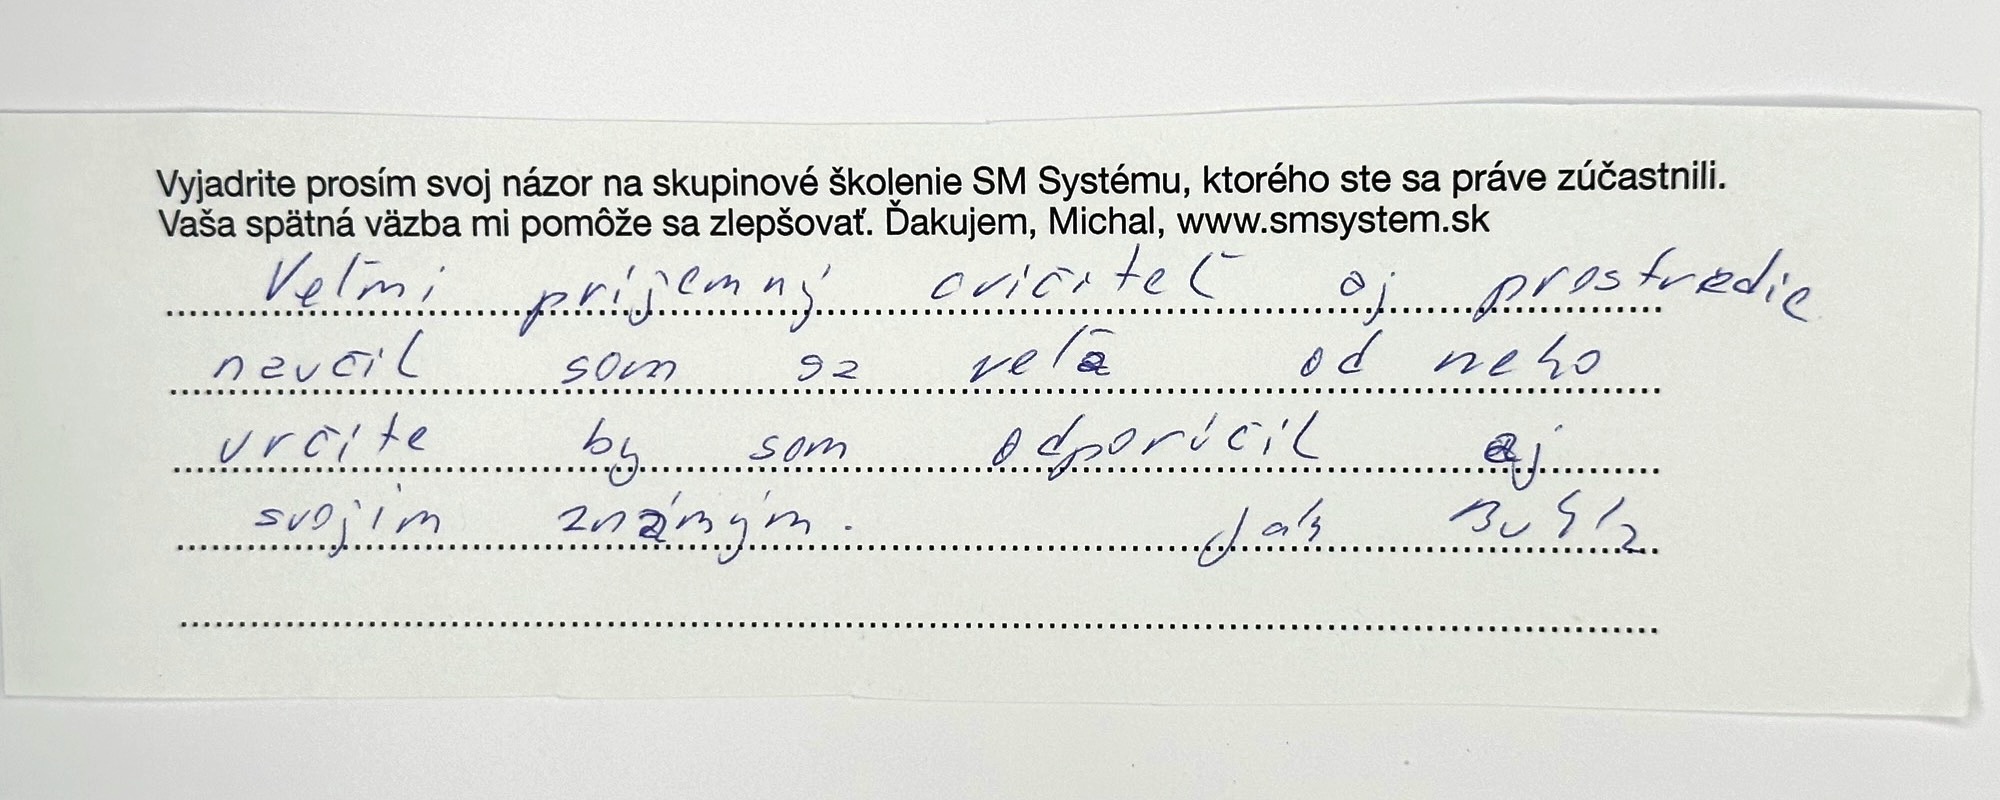 Vyjadrite prosím svoj názor na skupinové školenie SM Systému, ktorého ste sa práve zúčastnili.
Vaša spätná väzba mi pomôže sa zlepšovať. Ďakujem, Michal, www.smsystem.sk
Veľmi príjemný cvičiteľ aj prostredie
naučil som sa veľa od neho
určite by som odporúčil aj
svojim známym.